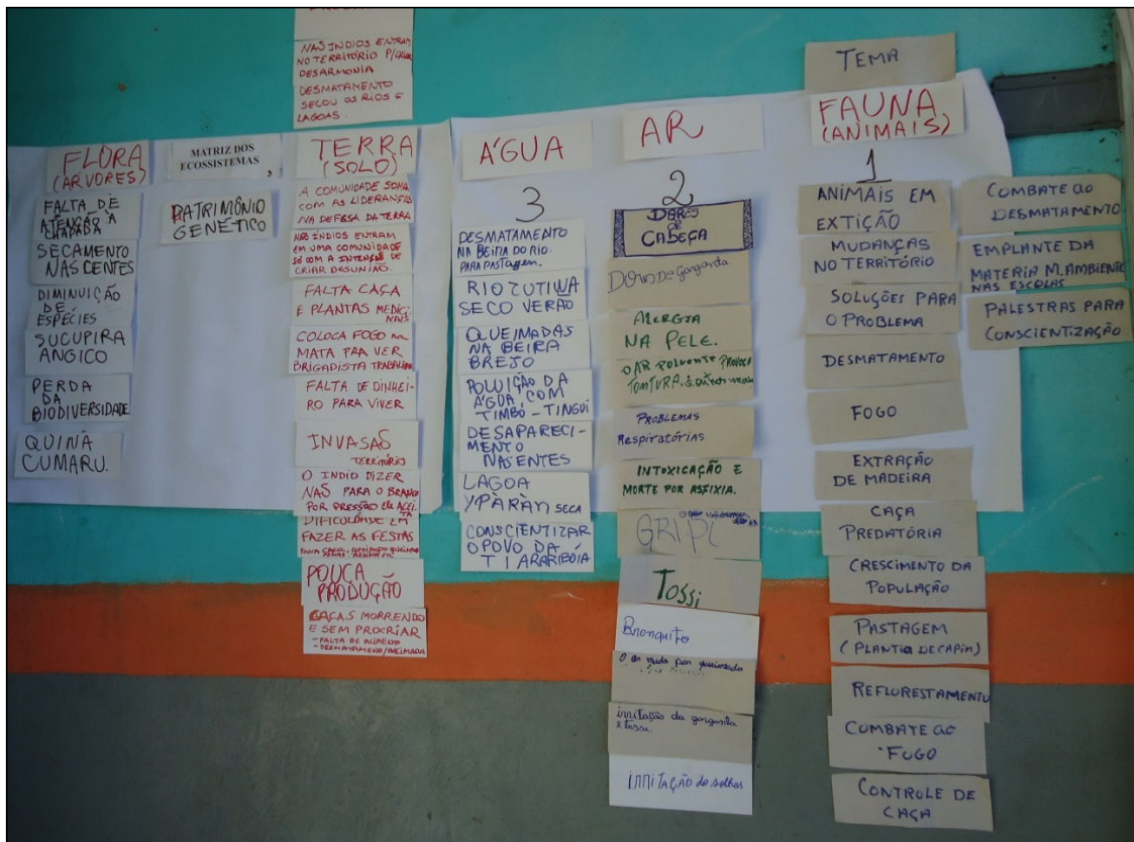 FLORA
(ARVORES)
FALTA DE
ATENÇÃO À
CHAPADA
SECAMENTO
NASCENTES
DIMINUIÇÃO
DE
ESPÉCIES
SUCUPIRA
ANGICO
PERDA
DA
BIODIVERSIDADE
QUINA
CUMARU.
MATRIZ DOS
ECOSSISTEMAS
PATRIMÔNIO
GENÉTICO
NAS INDIOS ENTRAM
NO TERRITÓRIO P/
DESARMONIA
DESMATAMENTO
SECOU OS RIOS E
LAGOAS.
TERRA
(SOLO)
A COMUNIDADE SOMA
COM AS LIDERANÇAS
NA DEFESA DA TERRA
NÃO ÍNDIOS ENTRAM
EM UMA COMUNIDADE
SÓ COM A INTENÇÃO DE
CRIAR DESUNIÃO.
FALTA CAÇA
E PLANTAS MEDICI
NAIS
COLOCA FOGO NA
MATA PRA VER
BRIGADISTA TRABALHA
FALTA DE DINHEI-
RO PARA VIVER
INVASÃO
TERRITÓRIO
O INDIO DIZER
NÃS PARA O BRANCO
POR PRESSÃO ELE ACEI-
TA
DIFICULDADE EM
FAZER AS FESTAS
POUCA
PRODUÇÃO
CAÇAS MORRENDO
E SEM PROCRIAR
- FALTA DE ALIMENO
- DESMATAMENO/QUEIMADA
ÁGUA
3
DESMATAMENTO
NA BEIRA DO RIO.
PARA PASTAgem.
RIO ZUTIWA
SECO VERÃO
QUEIMADAS
NA BEIRA
BREJO
POLUIÇÃO DA
ÁGUA, COM
TIMBÓ - TINGUI
DESAPARECI-
MENTO
NASENTES
LAGOA
YPÀRÀN SECA
CONSCIENTIZAR
O POVO DA
T I ARARIBÓIA
AR
2
DORES
DE
CABEÇA
DORES De Garganta
ALERGIA
NA PELE.
O AR POLUENTE PROVOCA
TONTURA.
PROBLEMAS
Respiratórias
INTOXICAÇÃO E
MORTE POR ASFIXIA.
GRIPE
Tossi
Bronquite
O ar muda por queimada
irritação da garganta
e tosse.
IRRITAÇÃO dos olhos
TEMA
FAUNA
(ANIMAIS)
1
ANIMAIS EM
EXTIÇÃO
MUDANÇAS
NO TERRITÓRIO
SOLUÇÕES PARA
O PROBLEMA
DESMATAMENTO
FOGO
EXTRAÇÃO
DE MADEIRA
CAÇA
PREDATÓRIA
CRESCIMENTO DA
POPULAÇÃO
PASTAGEM
(PLANTIO DE CAPIM)
REFLORESTAMENTO
COMBATE AO
FOGO
CONTROLE DE
CAÇA
COMBATE AO
DESMATAMENTO
EMPLANTE DA
MATERIA M. AMBIENTE
NAS ESCOLAS
PALESTRAS PARA
CONSCIENTIZAÇÃO